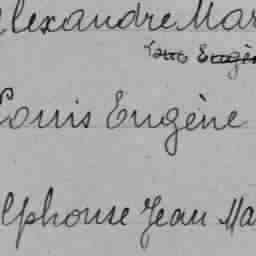 Alexandre Mar
Louis Eugèn
Louis Eugène
Alphonse Jean Ma